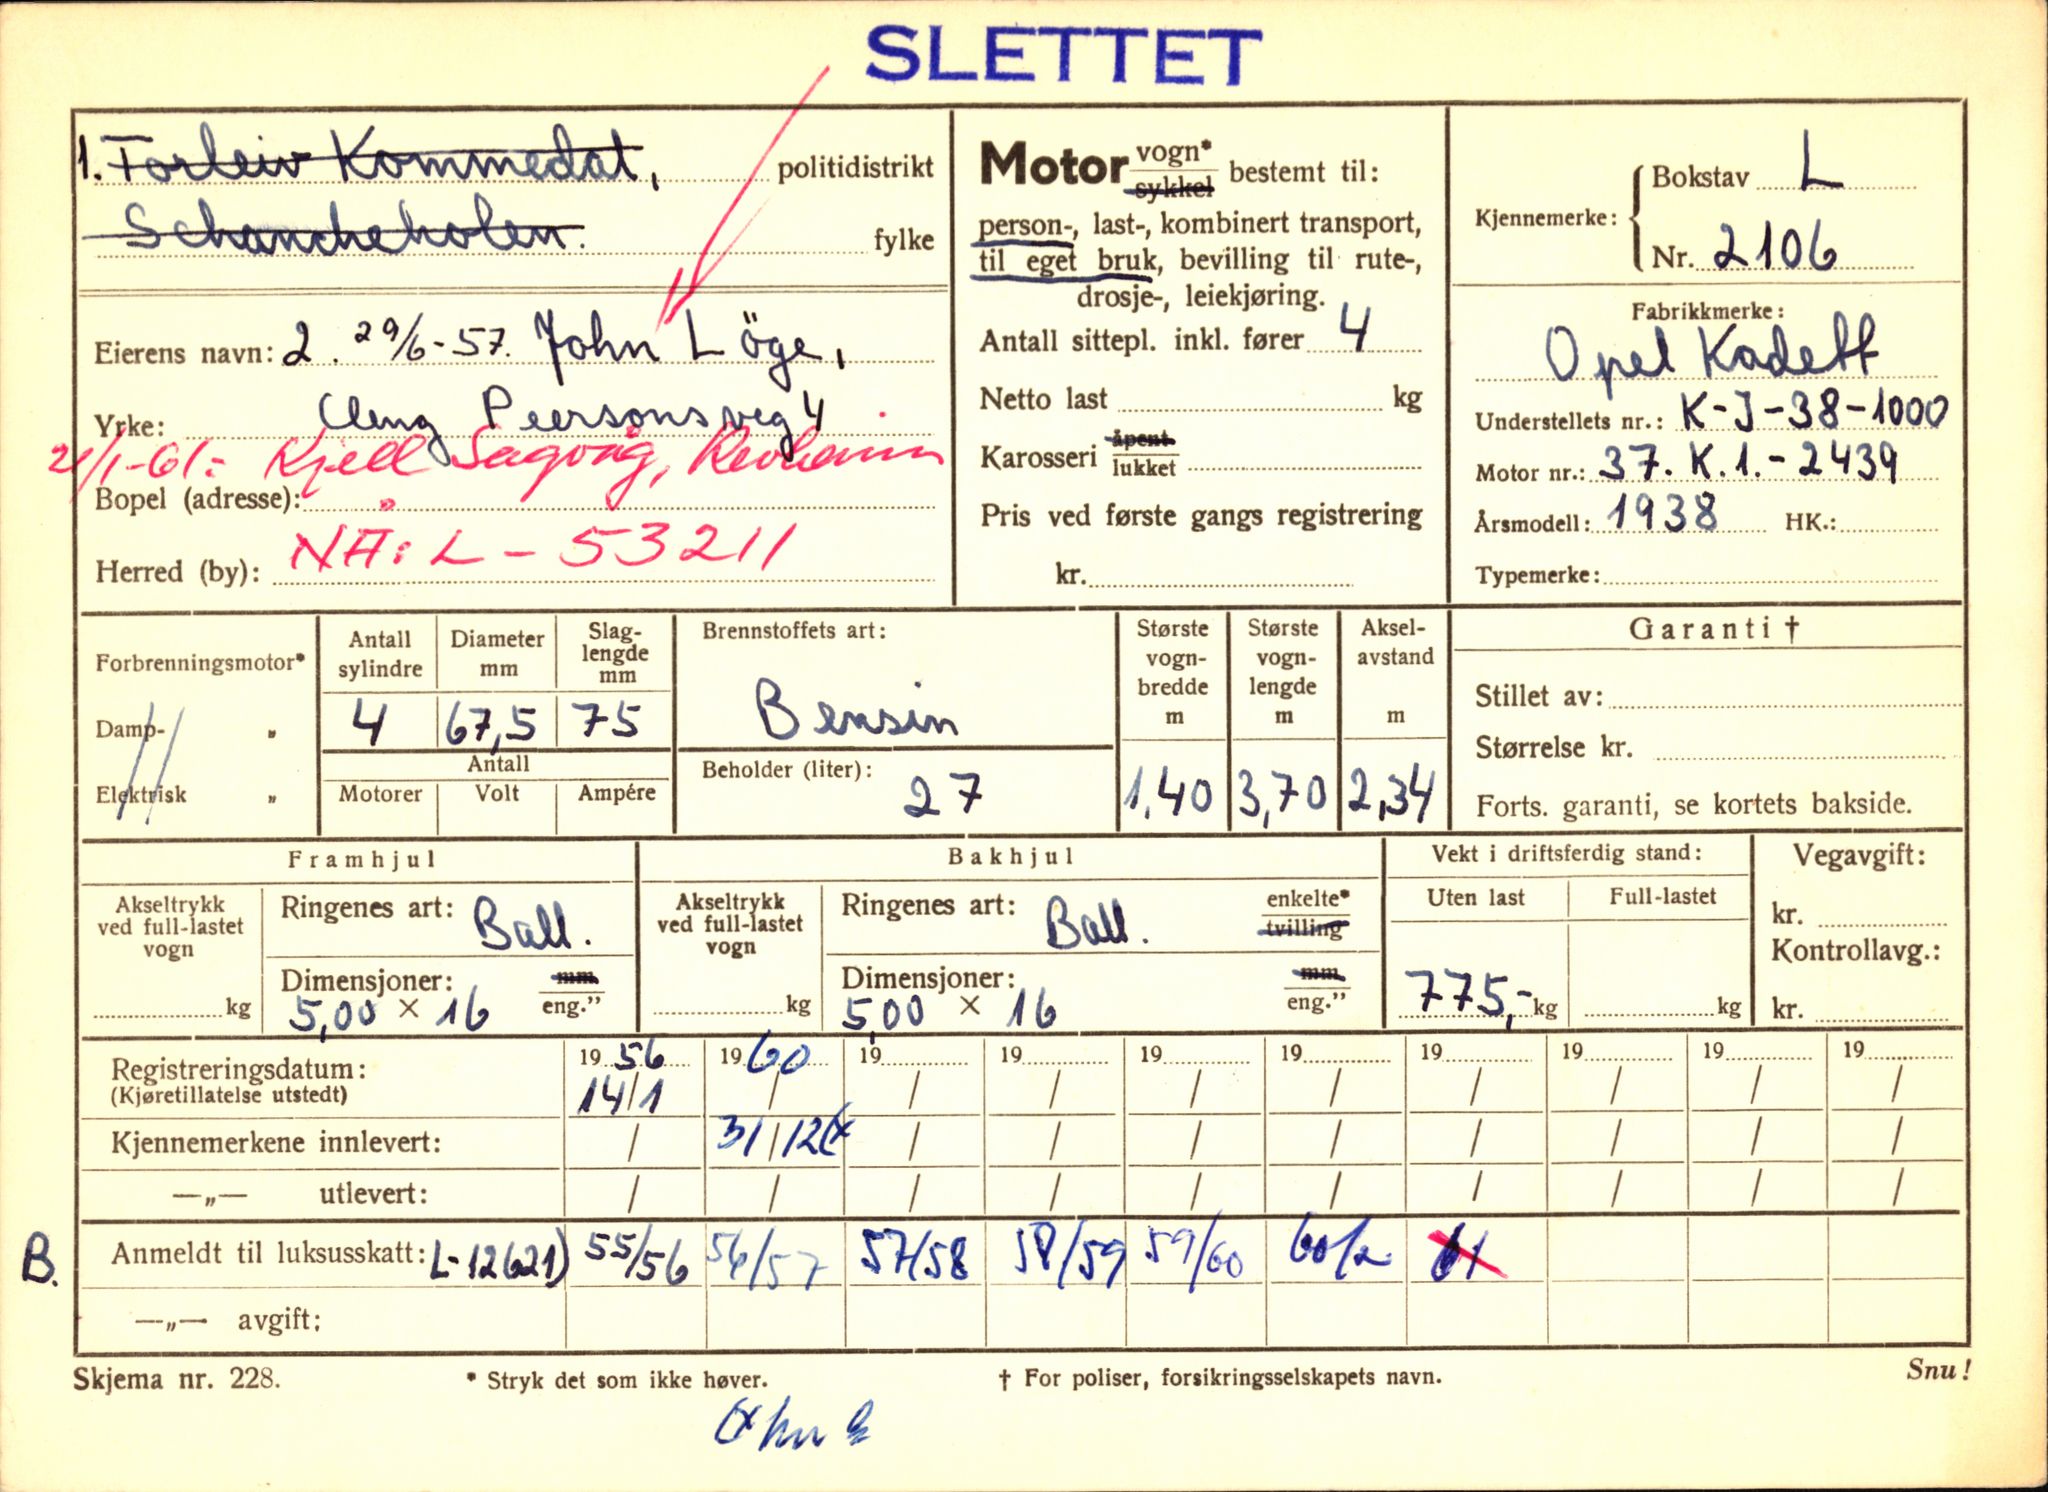 SLETTET
1. Torleiv Kommedal, politidistrikt
Schancheholen. fylke
Eierens navn: 2. 29/6-57. John Löge,
Yrke: Peersonsveg 4
21/1-61: Kjell Sagvåg, Revheim
Bopel (adresse):
NÅ: L - 53211
Herred (by):
Motor vogn* sykkel bestemt til:
person-, last-, kombinert transport,
til eget bruk, bevilling til rute-,
drosje-, leiekjøring.
Antall sittepl. inkl. fører 4
Netto last kg
Karosseri åpent lukket
Pris ved første gangs registrering
kr.
Kjennemerke: Bokstav L
Nr. 2106
Fabrikkmerke:
Opel Kadett
Understellets nr.: K-J-38-1000
Motor nr.: 37. K.1.-2439
Årsmodell: 1938 HK.:
Typemerke:
Forbrenningsmotor*
Damp- „
Elektrisk „
Antall sylindre
4
Diameter mm
67,5
Slag-lengde mm
75
Antall
Motorer Volt Ampére
Brennstoffets art:
Bensin
Beholder (liter):
27
Største vogn-bredde m
1,40
Største vogn-lengde m
3,70
Aksel-avstand m
2,34
Garanti †
Stillet av:
Størrelse kr.
Forts. garanti, se kortets bakside.
Framhjul
Akseltrykk ved full-lastet vogn
kg
Ringenes art: Ball.
Dimensjoner: mm eng."
5,00 × 16
Bakhjul
Akseltrykk ved full-lastet vogn
kg
Ringenes art: Ball. enkelte* tvilling
Dimensjoner: mm eng."
5,00 × 16
Vekt i driftsferdig stand:
Uten last Full-lastet
775,- kg kg
Vegavgift:
kr.
Kontrollavg.:
kr.
Registreringsdatum: 19 56 19 60 19 19 19 19 19 19 19 19
(Kjøretillatelse utstedt) 14/1 / / / / / / / / /
Kjennemerkene innlevert: / 31/12 (x / / / / / / / /
—„— utlevert: / / / / / / / / / /
B. Anmeldt til luksusskatt: L-12621) 55/56 56/57 57/58 58/59 59/60 60/2 61
—„— avgift:
Skjema nr. 228. * Stryk det som ikke høver. † For poliser, forsikringsselskapets navn. Snu!